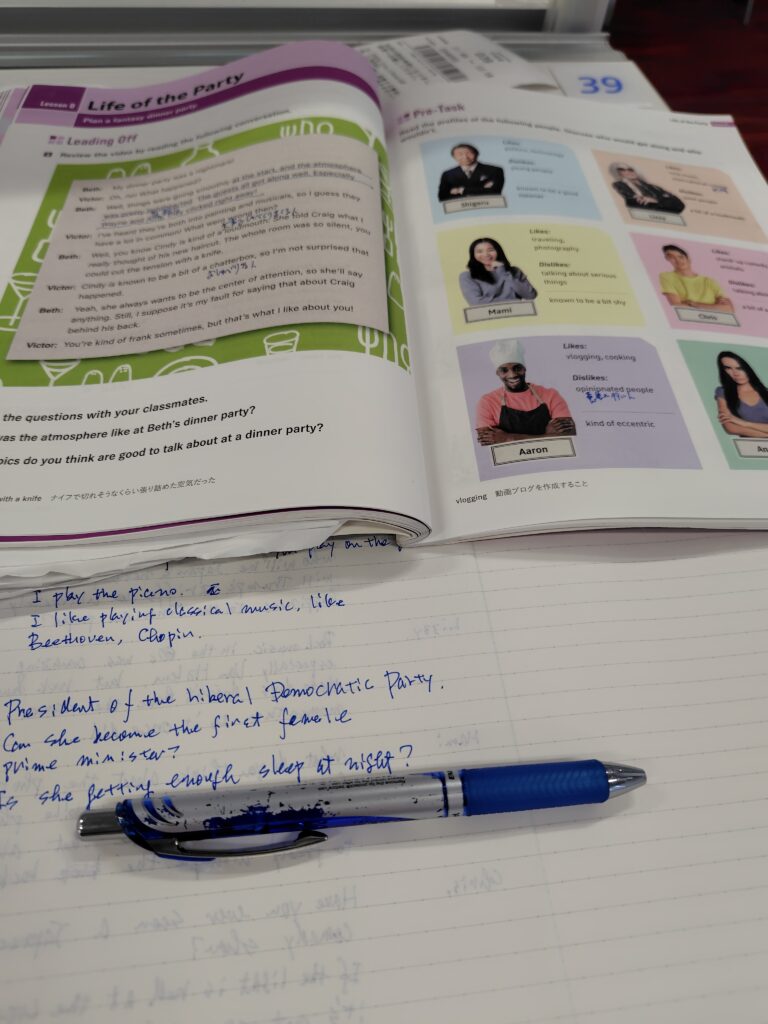 39
Lesson 9
Life of the Party
Plan a fantasy dinner party
Leading Off
Review the video by reading the following conversation.
who
Beth: My dinner party was a nightmare!
Victor: Oh, no! What happened?
Beth: Well, things were going smoothly at the start, and the atmosphere
was pretty The guests all got along well. Especially
Wayne and clicked right away!
Victor: I've heard they're both into painting and musicals, so I guess they
have a lot in common! What went wrong then?
Beth: Well, you know Cindy is kind of a loudmouth. She told Craig what I
really thought of his new haircut. The whole room was so silent, you
could cut the tension with a knife.
Victor: Cindy is known to be a bit of a chatterbox, so I'm not surprised that
happened.
Beth: Yeah, she always wants to be the center of attention, so she'll say
anything. Still, I suppose it's my fault for saying that about Craig
behind his back.
Victor: You're kind of frank sometimes, but that's what I like about you!
the questions with your classmates.
was the atmosphere like at Beth's dinner party?
pics do you think are good to talk about at a dinner party?
with a knife ナイフで切れそうなくらい張り詰めた空気だった
Pre-Task
Read the profiles of the following people. Discuss who would get along and who
wouldn't.
Likes:
Dislikes:
young people
known to be a good
Shigeru
Likes:
Dislikes:
Likes:
traveling,
photography
Dislikes:
talking about serious
things
known to be a bit shy
Mami
Likes:
Dislikes:
talking abou
Chris
Likes:
vlogging, cooking
Dislikes:
opinionated people
kind of eccentric
Aaron
An
vlogging 動画ブログを作成すること
play on the
I play the piano.
I like playing classical music, like
Beethoven, Chopin.
President of the Liberal Democratic Party.
Can she become the first female
prime minister?
Is she getting enough sleep at night?